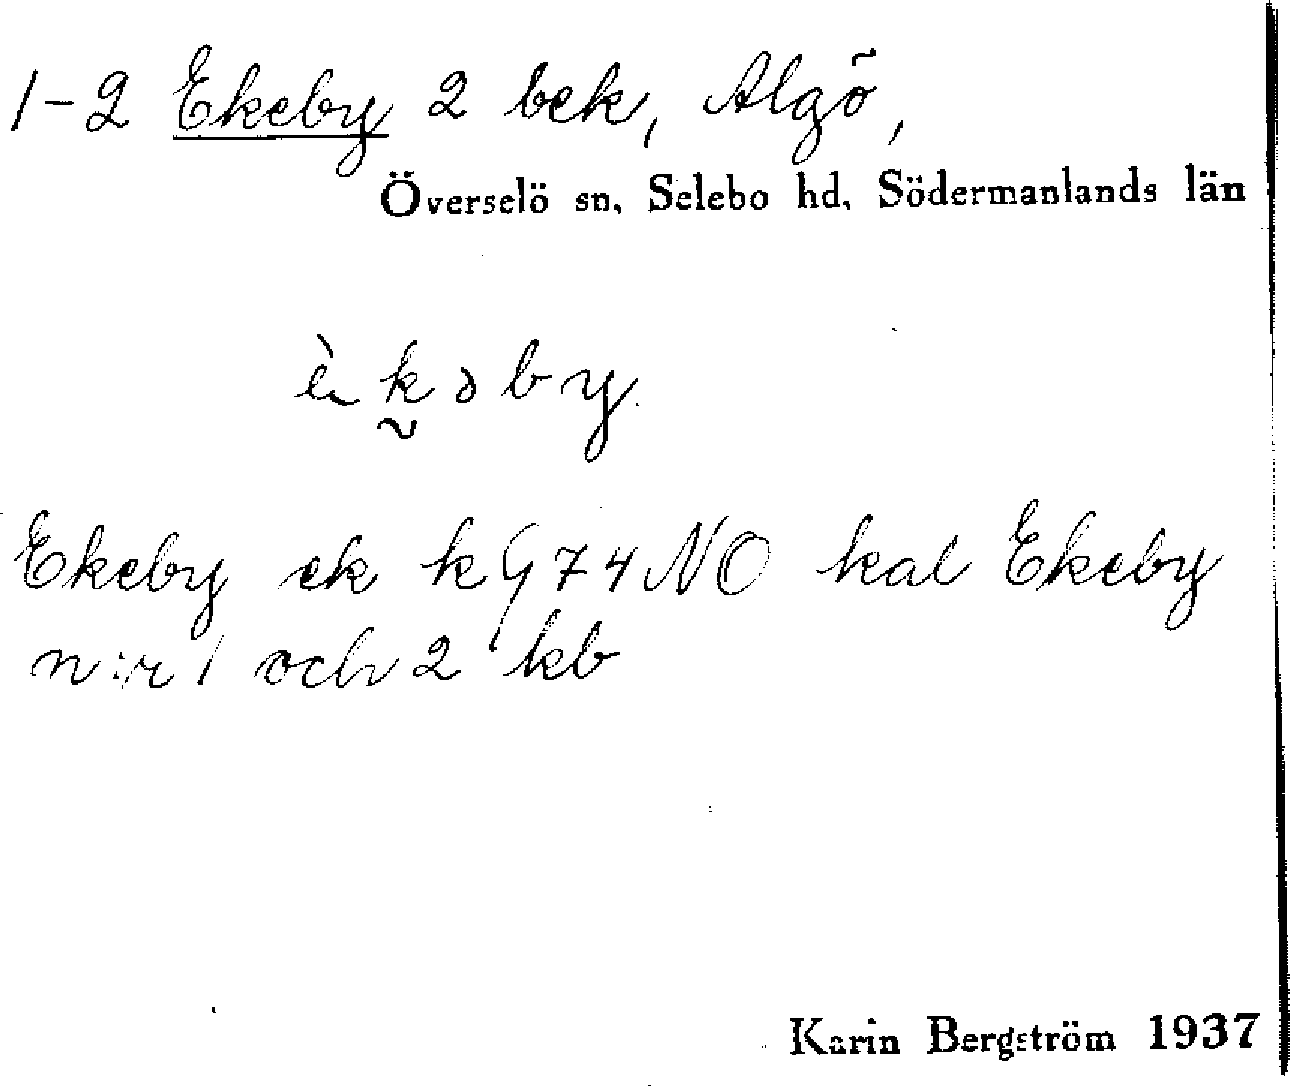 1-2 Ekeby 2 bek, Algö,
Överselö sn, Selebo hd, Södermanlands län
èkəby
Ekeby ek k G 74 NO kal Ekeby
n:r 1 och 2 kb
Karin Bergström 1937